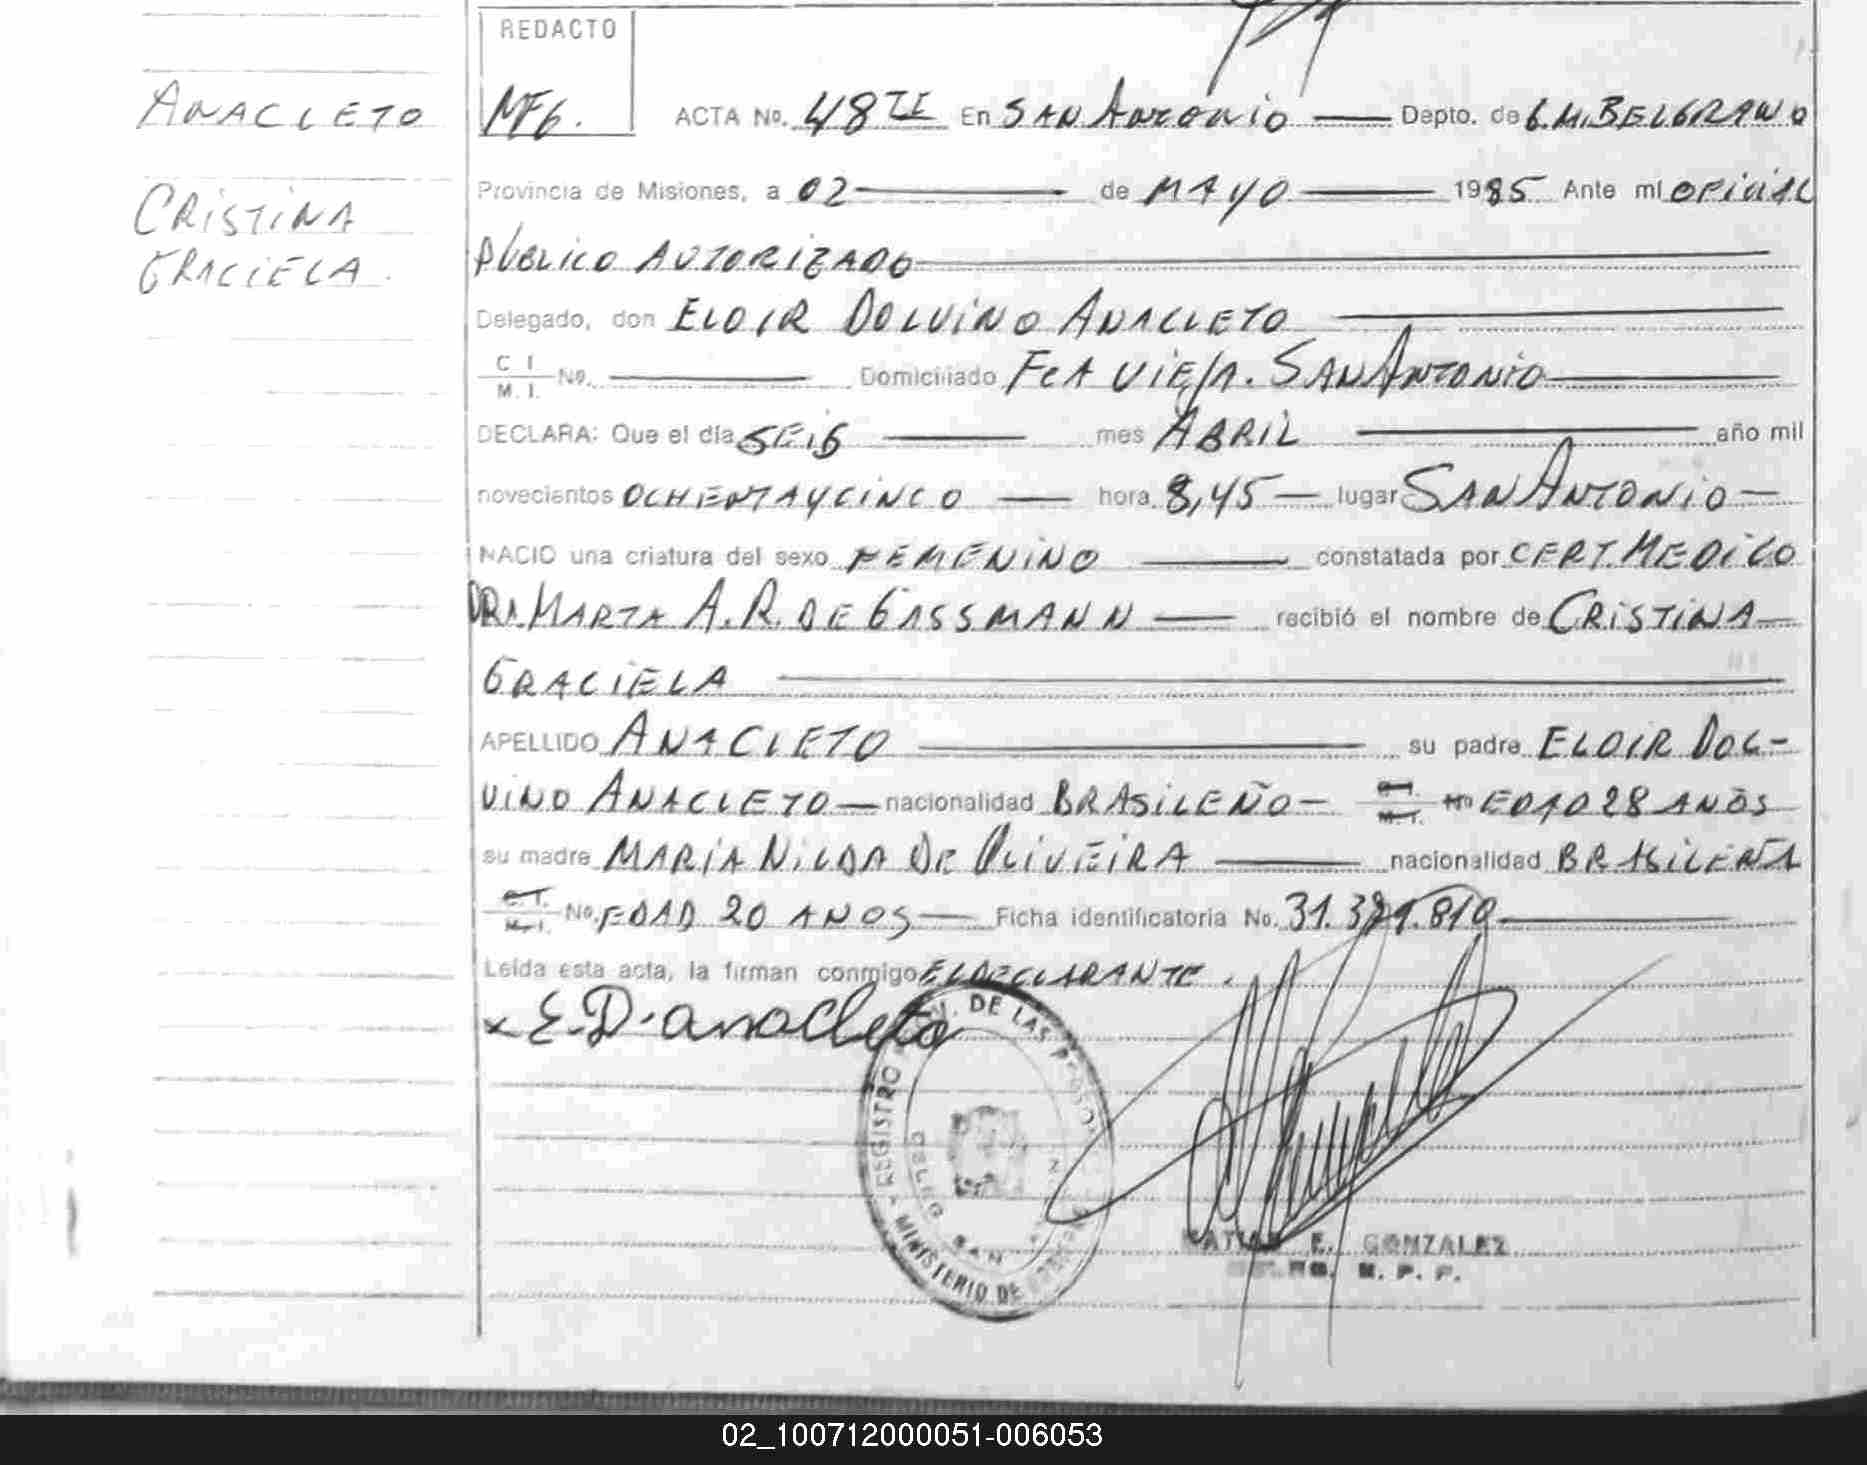 REDACTO
ANACLETO
CRISTINA
GRACIELA.
MFG. ACTA No. 48 TI En SAN ANTONIO Depto. de G.M. BELGRANO
Provincia de Misiones, a 02 de MAYO 1985 Ante mi OFICIAL
PUBLICO AUTORIZADO
Delegado, don ELOIR DOLVINO ANACLETO
C I
M. I. No. Domiciliado FCA VIEJA. SAN ANTONIO
DECLARA: Que el día SEIS mes ABRIL año mil
novecientos OCHENTA Y CINCO hora 8,45 lugar SAN ANTONIO
NACIO una criatura del sexo FEMENINO constatada por CERT. MEDICO
DRA. MARTA A. R. DE GASSMANN recibió el nombre de CRISTINA
GRACIELA
APELLIDO ANACLETO su padre ELOIR DOL-
VINO ANACLETO nacionalidad BRASILEÑO C.I. M.I. No EDAD 28 AÑOS
su madre MARIA NILDA DE OLIVEIRA nacionalidad BRASILEÑA
C.I. M.I. No. EDAD 20 AÑOS Ficha identificatoria No. 31.3.810
Leída esta acta, la firman conmigo EL DECLARANTE.
x E. D. anacleto
REGISTRO DE LAS MINISTERIO DE
DELEG SAN
E. GONZALEZ
M. P. P.
02_100712000051-006053